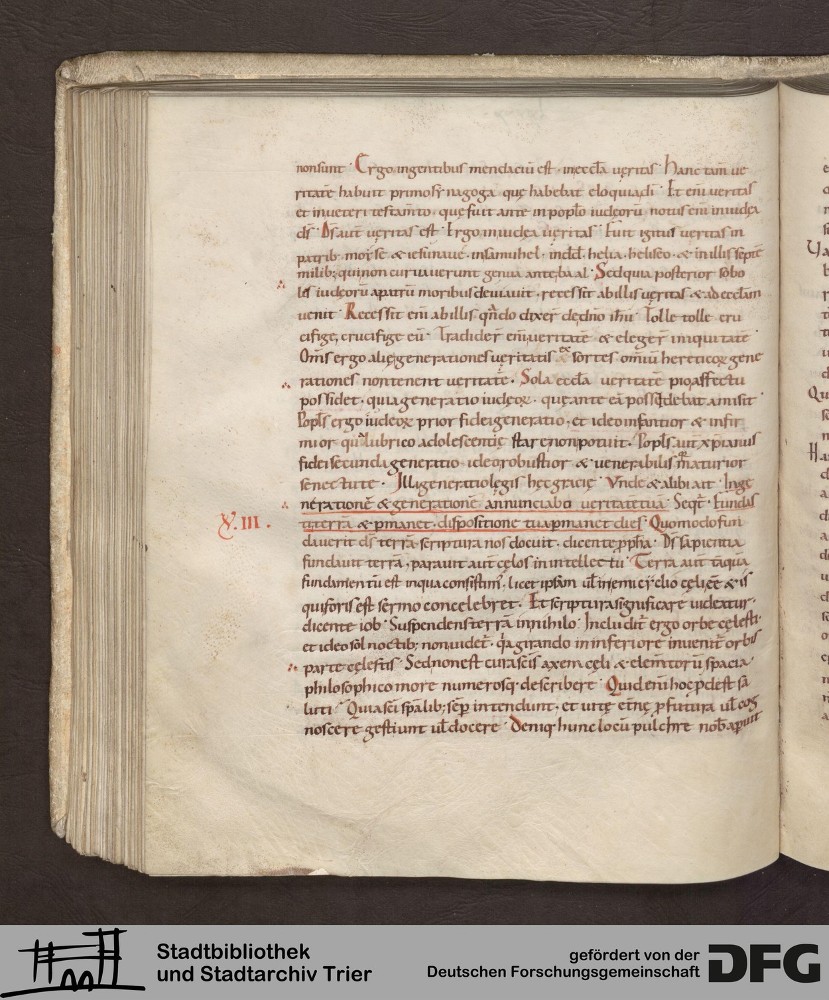 non sunt · Ergo in gentibus mendaciū est · in eccl̄a uęritas · Hanc tam̄ ue
ritatē habuit primo synagoga quę habebat eloquia dī · Et eni uęritas
et in ueteri testam̄to · quę fuit ante in pop̄lo iudęorū · notus eni in iudęa
ds̄ · Ds̄ aut̄ uęritas est · Ergo in iudęa uęritas · Fuit igitur uęritas in
patrib; moyse & iesu naue · in samuhel · in dd̄ · helia · heliseo · & in illis septē
milib; qui non curuauerunt genua ante baal · Sed quia posterior sobo
les iudęorū a patrū moribus deuiauit · recessit ab illis uęritas · & ad eccl̄am
uenit · Recessit eni ab illis qn̄do dixer̄ de dn̄o ihū · Tolle tolle cru
cifige, crucifige eū · Tradider̄ eni ueritatē & eleger̄ iniquitatē ·
Om̄s ergo alię generationes ueritatis exsortes · omniū hereticoꝝ gene
rationes non tenent ueritatē · Sola eccl̄a ueritatē pio affectu
possidet · quia generatio iudęoꝝ · quę ante eā possidebat amisit ·
Pop̄ls ergo iudęoꝝ prior fidei generatio · et ideo infantior & infir
mior quasi lubrico adolescentię stare non potuit · Pop̄ls aut̄ xp̄ianus
fidei secunda generatio · ideo robustior & uenerabilis maturior
senectute · Illa generatio legis hęc gratię · Vnde & alibi ait · In ge
nerationē & generationē annunciabo ueritatē tuā · Seqt̄ · Fundas
XIII .
ti terrā & p̱manet · dispositione tua p̱manet dies · Quomodo fun
dauerit ds̄ terrā scriptura nos docuit · dicente pp̄ha · Ds̄ sapientia
fundauit terrā · parauit aut̄ cęlos in intellectu · Terra aut̄ tāquā
fundamentū est in qua consistim; licet ipsam
quiforis est sermo concelebret · Et scriptura significare uideatur ·
dicente iob · Suspendens terrā in nihilo · Includit̄ ergo orbe cęlesti ·
et ideo sol noctib; non uidet̄ · q̄a girando in inferiore inuenit̄ orbis
parte cęlestis · Sed non est cura scīs axem cęli & elem̄torū spacia ·
philosophico more numerosq; describere · Quid eni hoc p̱dest sa
luti · Quia scī sp̄alib; semp̱ intendunt · et uitę etn̄ę p̱futura ul̄ cog
noscere gestiunt ul̄ docere · Deniq; hunc locū pulchre nob̄ aperuit
Stadtbibliothek
und Stadtarchiv Trier
gefördert von der
Deutschen Forschungsgemeinschaft
DFG